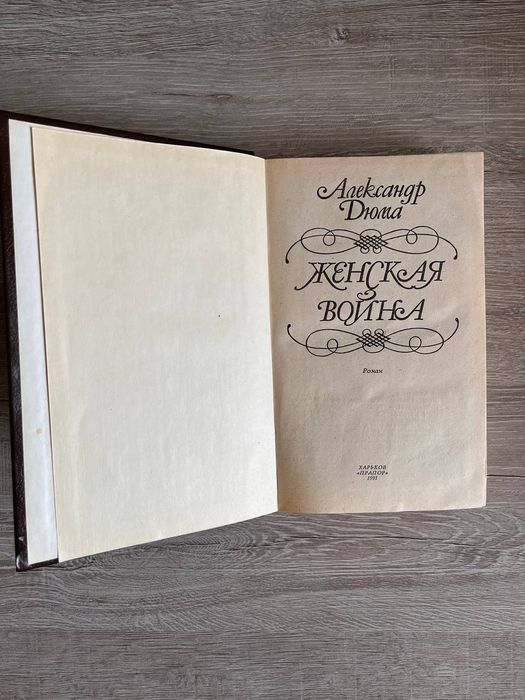 Александр
Дюма
ЖЕНСКАЯ
ВОЙНА
Роман
ХАРЬКОВ
«ПРАПОР»
1991